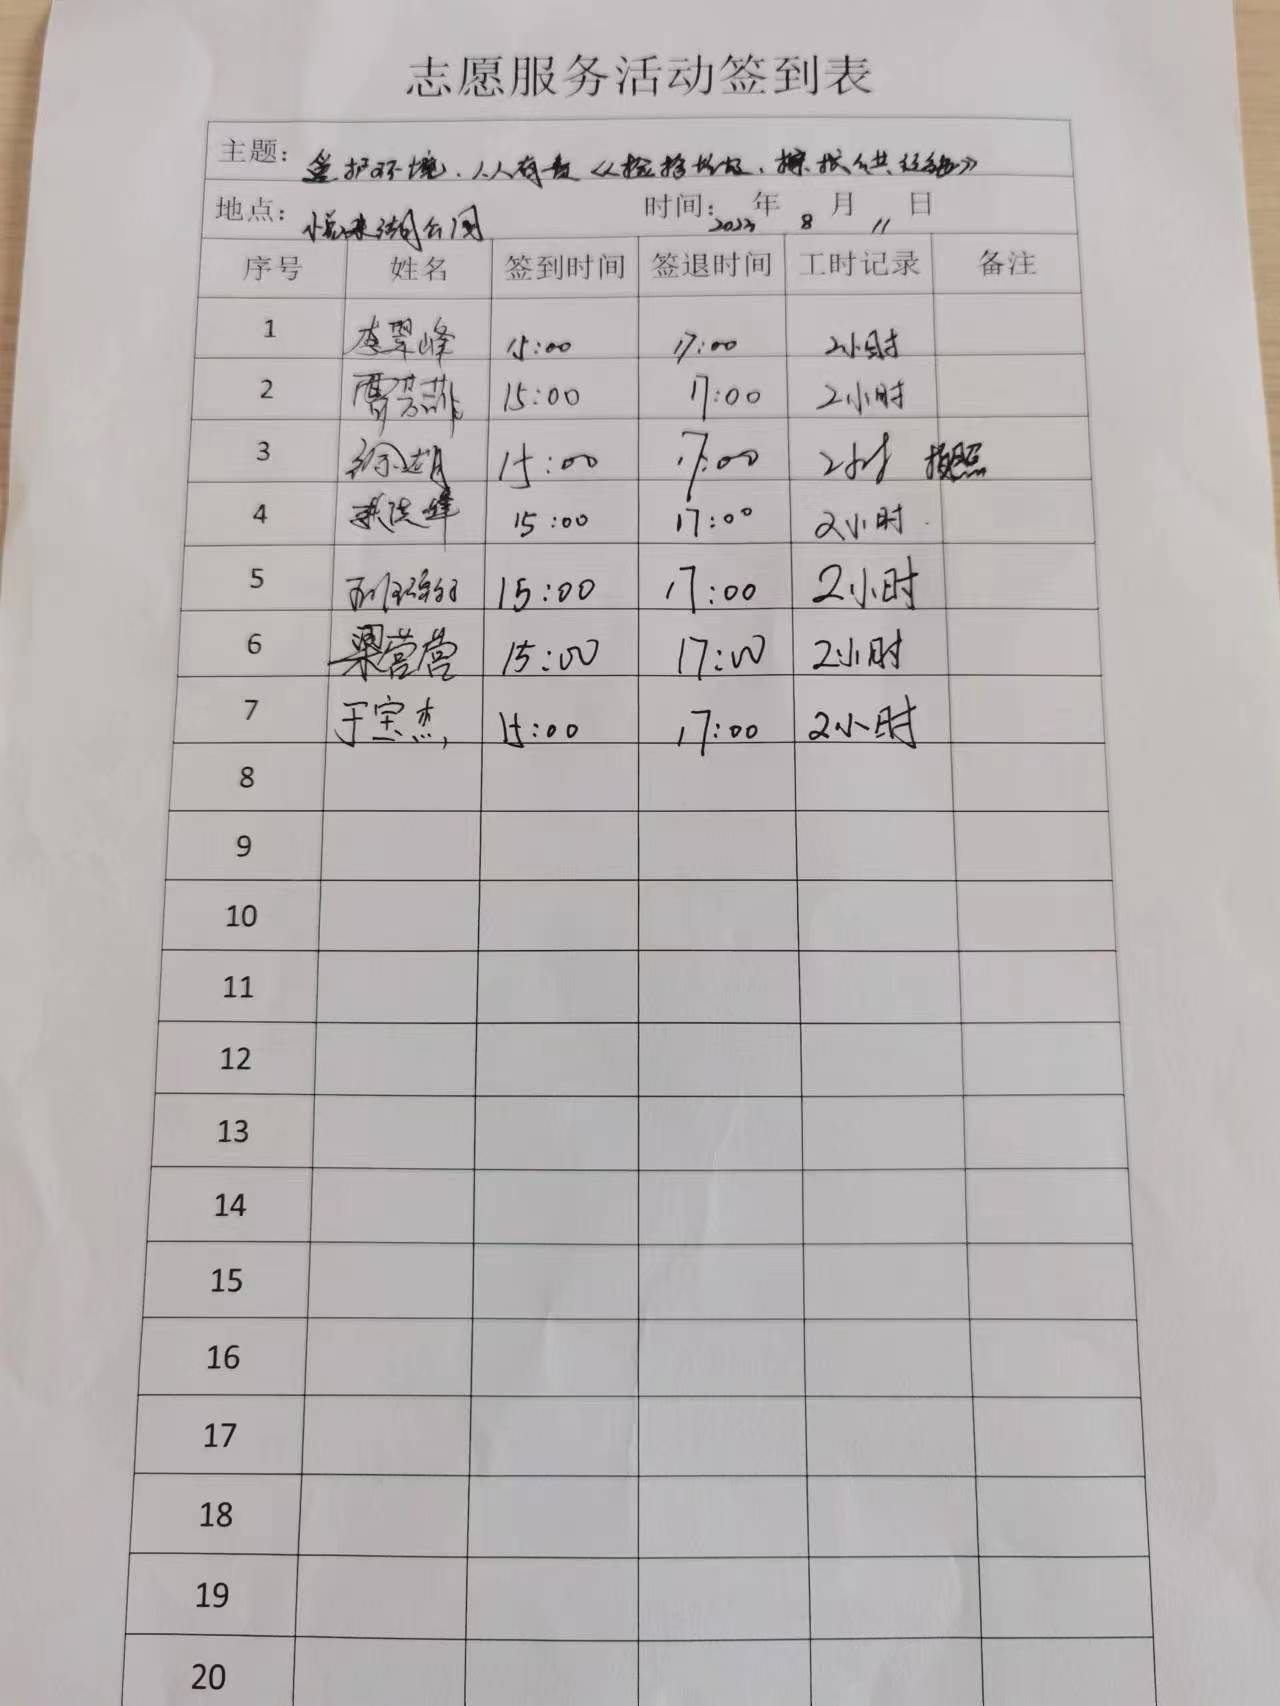 志愿服务活动签到表
主题: 爱护环境、人人有责《捡拾垃圾、擦拭公共设施》
地点: 悦来湖公园 时间: 2023 年 8 月 11 日
序号 姓名 签到时间 签退时间 工时记录 备注
1 李翠峰 15:00 17:00 2小时
2 15:00 17:00 2小时
3 15:00 17:00 2小时 拍照
4 15:00 17:00 2小时
5 15:00 17:00 2小时
6 梁营营 15:00 17:00 2小时
7 于宝杰 15:00 17:00 2小时
8
9
10
11
12
13
14
15
16
17
18
19
20